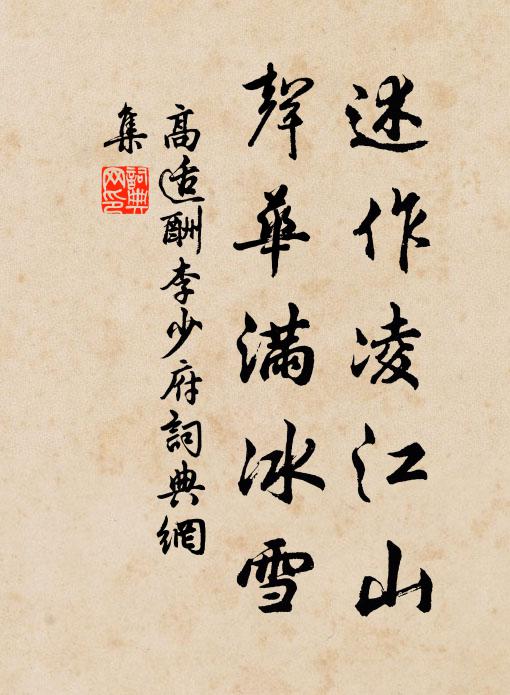 述作凌江山
聲華滿冰雪
高适酬李少府詞典網
集
詞典网印